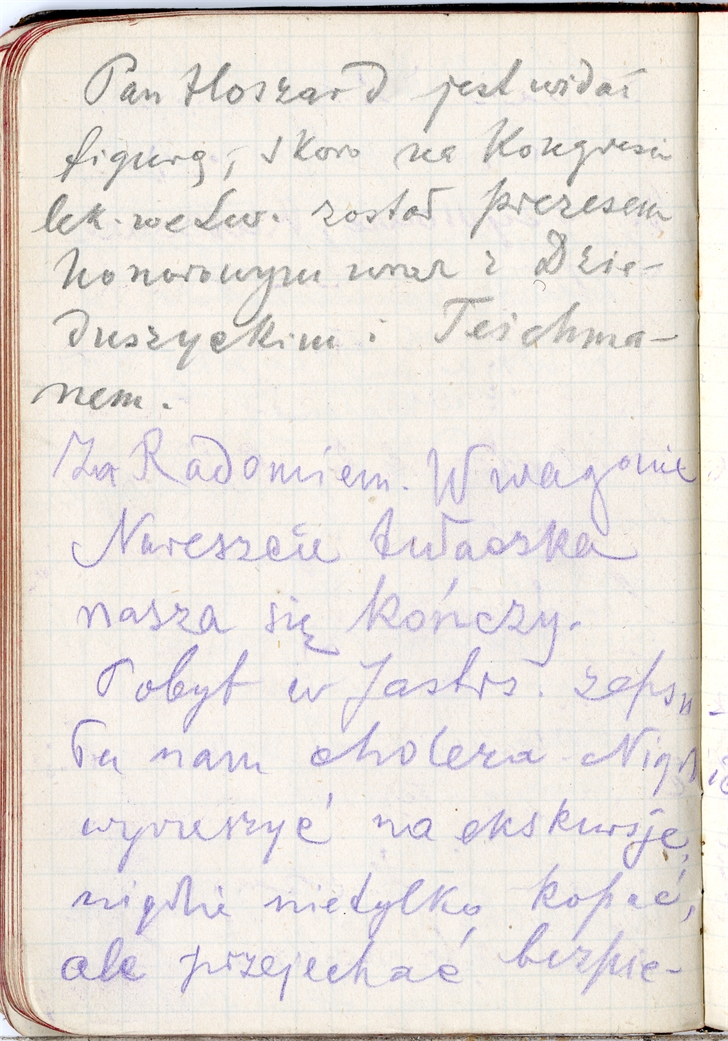 Pan Hoszard jest widać
figurą, skoro na Kongresie
lek. we Lw. został prezesem
honorowym wraz z Dzie-
duszyckim i Teichma-
nem.
Za Radomiem. W wagonie
Nareszcie tułaczka
nasza się kończy.
Pobyt w Jastrz. zepsu
ła nam cholera Nigdzie
wyruszyć na ekskursje,
nigdzie nietylko kopać,
ale przejechać bezpie-